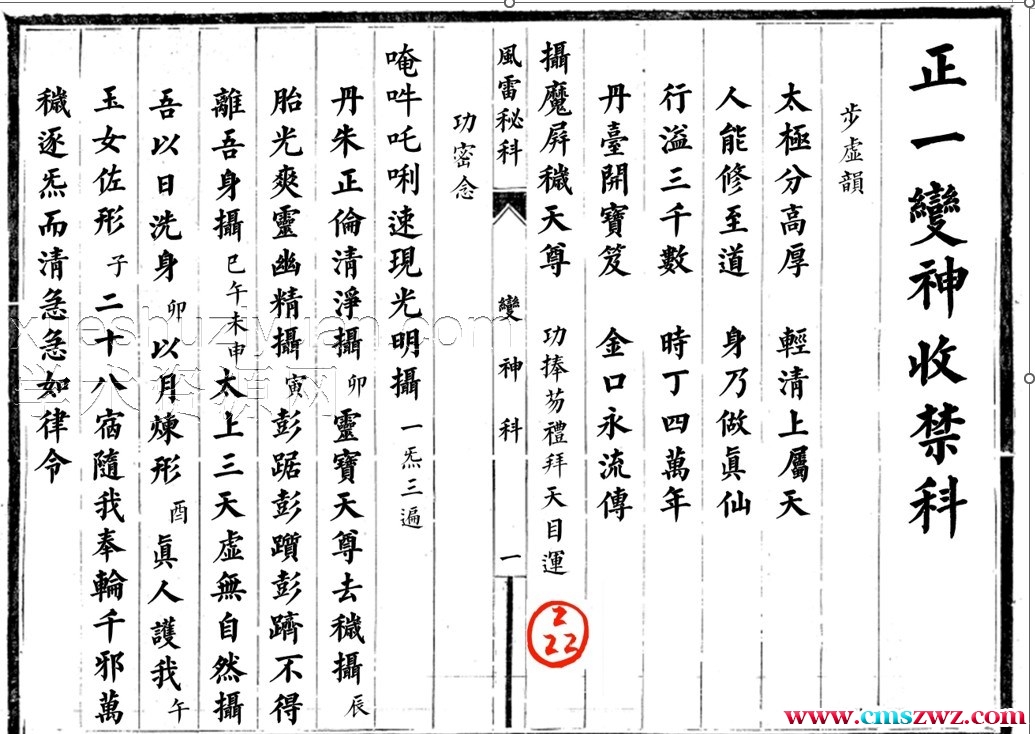 正一變神收禁科
步虛韻
太極分高厚 輕清上屬天
人能修至道 身乃做眞仙
行溢三千數 時丁四萬年
丹臺開寶笈 金口永流傳
攝魔屏穢天尊 功捧芴禮拜天目運
風雷秘科 變神科 一
功密念
唵吽吒唎速現光明攝 一炁三遍
丹朱正倫清淨攝 卯 靈寶天尊去穢攝 辰
胎光爽靈幽精攝 寅 彭踞彭躓彭躋不得
離吾身攝 巳午未申 太上三天虛無自然攝
吾以日洗身 卯 以月煉形 酉 眞人護我 午
玉女佐形 子 二十八宿隨我奉輪千邪萬
穢逐炁而清急急如律令
222
xueshuziyuan.com
学术资源网
www.cmszwz.com